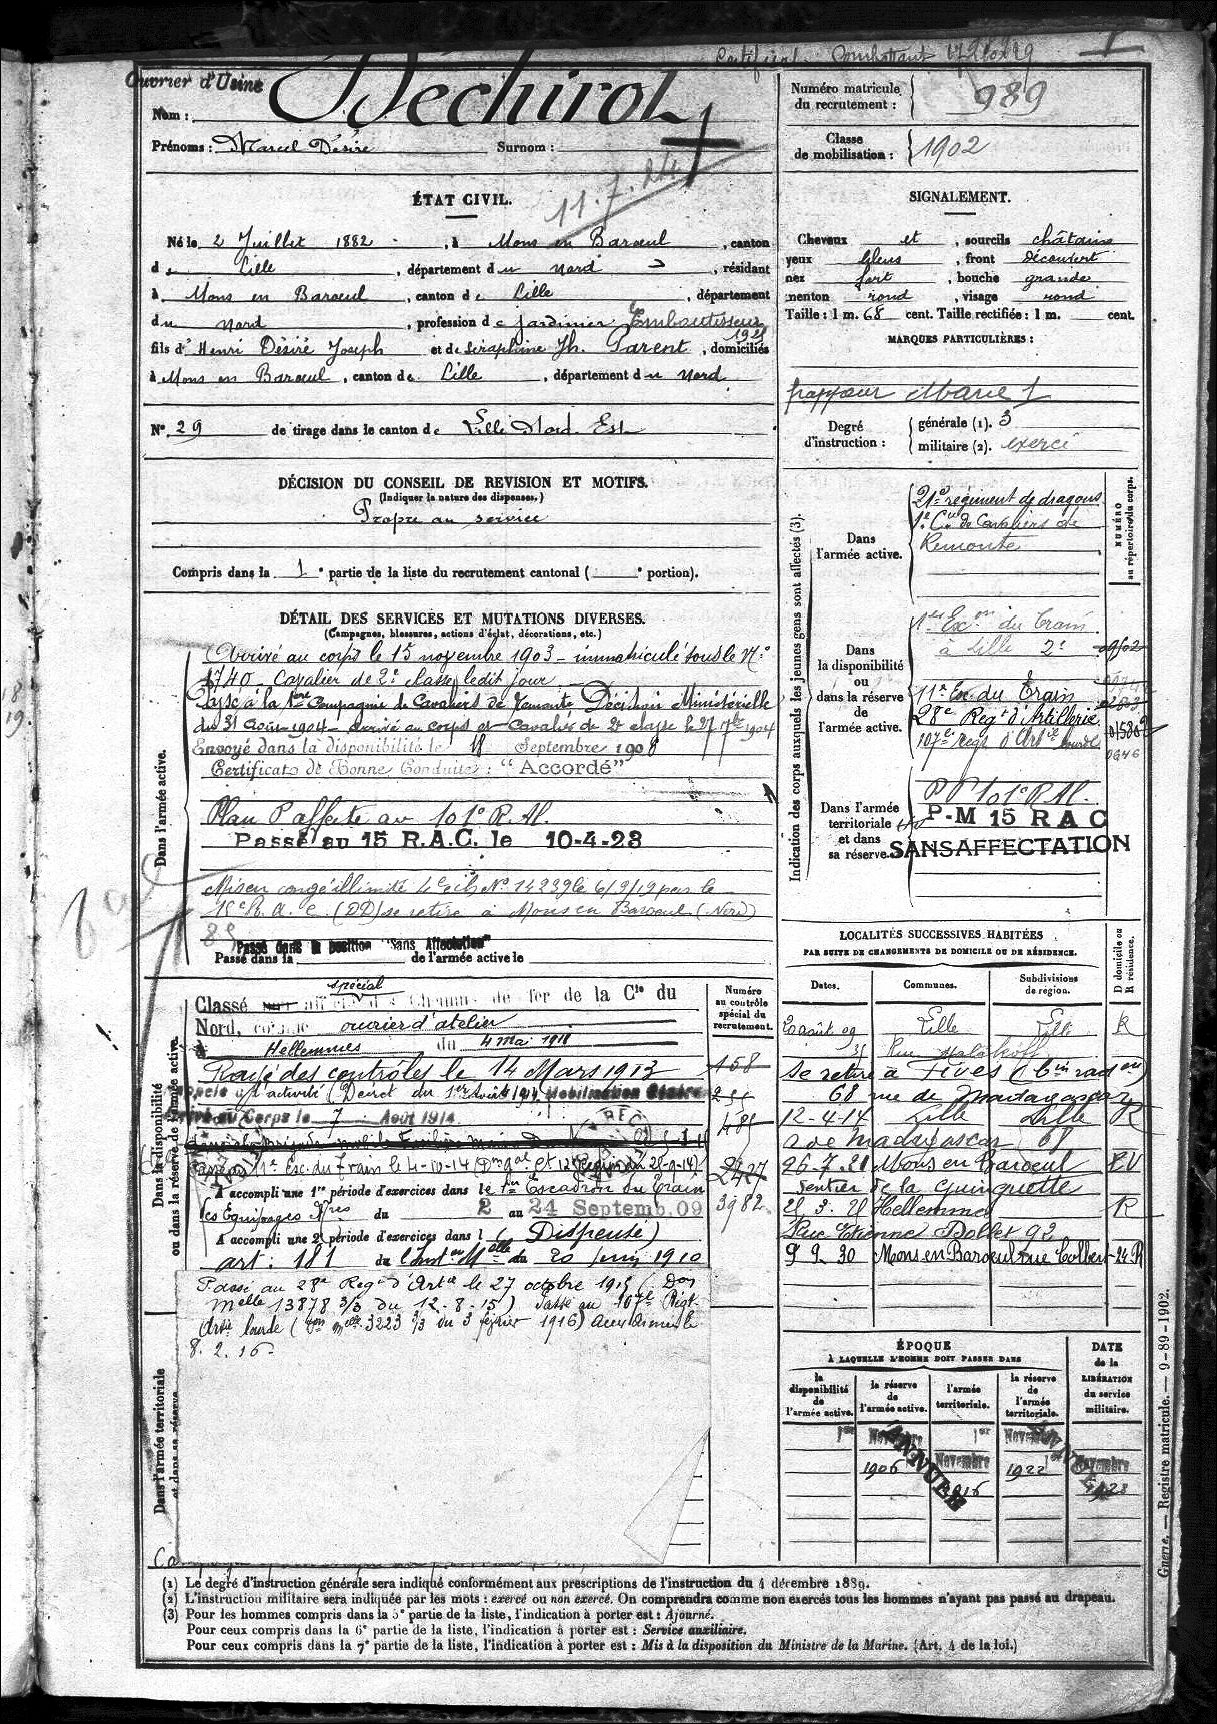 Certificat Combattant
Ouvrier d'Usine
Nom : Dechirot
Prénoms : Marcel Désiré Surnom :
11.7.24
Numéro matricule du recrutement : 989
Classe de mobilisation : 1902
ÉTAT CIVIL.
Né le 2 Juillet 1882, à Mons en Baroeul, canton
de Lille, département du Nord, résidant
à Mons en Baroeul, canton de Lille, département
du Nord, profession de jardinier Emboutisseur
1921
fils d' Henri Désiré Joseph et de Séraphine Jh. Parent, domiciliés
à Mons en Baroeul, canton de Lille, département du Nord
N° 29 de tirage dans le canton de Lille Nord Est
SIGNALEMENT.
Cheveux et, sourcils châtains
yeux bleus, front découvert
nez fort, bouche grande
menton rond, visage rond
Taille : 1 m. 68 cent. Taille rectifiée : 1 m. cent.
MARQUES PARTICULIÈRES :
frappeur Marié 1
Degré d'instruction : générale (1). 3
militaire (2). exercé
DÉCISION DU CONSEIL DE REVISION ET MOTIFS.
(Indiquer la nature des dispenses.)
Propre au service
Compris dans la 1e partie de la liste du recrutement cantonal ( e portion).
DÉTAIL DES SERVICES ET MUTATIONS DIVERSES.
(Campagnes, blessures, actions d'éclat, décorations, etc.)
Dans l'armée active.
Arrivé au corps le 15 novembre 1903 - immatriculé sous le N°
1740 - Cavalier de 2e classe ledit jour
Passé à la 1ère Compagnie de Cavaliers de Remonte Décision Ministérielle
du 31 Août 1904 - arrivé au corps et Cavalier de 2e classe le 27 7bre 1904
Envoyé dans la disponibilité le 18 Septembre 1906
Certificat de Bonne Conduite : "Accordé"
Plan P affecté au 101e R.A.L.
Passé au 15 R.A.C. le 10-4-23
Mis en congé illimité 4e éch N° 14239 le 6/9/19 par le
15e R.A.C. (DD) se retire à Mons en Baroeul (Nord)
Passé dans la position "Sans Affectation"
Passé dans la de l'armée active le
Indication des corps auxquels les jeunes gens sont affectés (3).
NUMÉRO au répertoire du corps.
Dans l'armée active.
21e régiment de dragons
1e Cie de Cavaliers de
Remonte
Dans la disponibilité ou dans la réserve de l'armée active.
1er Escon du Train
à Lille 2e
11e Esc. du Train
28e Régt d'Artillerie
107e Régt d'Artie lourde
Dans l'armée territoriale et dans sa réserve.
P P 101e R.A.L.
P-M 15 R A C
SANS AFFECTATION
Dans la disponibilité ou dans la réserve de l'armée active.
Numéro au contrôle spécial du recrutement.
spécial
Classé non affecté des Chemins de fer de la Cie du
Nord, comme ouvrier d'atelier
à Hellemmes du 4 mai 1911
Rayé des contrôles le 14 Mars 1913
Rappelé à l'activité (Décret du 1er Août 1914) Mobilisation Générale
Arrivé au Corps le 7 Août 1914
A accompli une 1re période d'exercices dans le 1er Escadron du Train
des Equipages Mres du 2 au 24 Septemb. 09
A accompli une 2e période d'exercices dans l (Dispensé)
art. 181 de l'Inston Mlle du 20 Juin 1910
158
2427
3982
Passé au 28e Régt d'Artie le 27 octobre 1915 (Don
Melle 13878 3/3 du 12-8-15) Passé au 107e Régt
Artie lourde (Don melle 3223 3/3 du 3 février 1916) aux armées le
8.2.16
Dans l'armée territoriale et dans sa réserve
LOCALITÉS SUCCESSIVES HABITÉES
PAR SUITE DE CHANGEMENTS DE DOMICILE OU DE RÉSIDENCE.
Dates. Communes. Subdivisions de région. D domicile ou R résidence.
20 août 09 Lille Lille R
35 Rue Malakoff
se retire à Fives
68 rue de Madagascar
12-4-14 Lille Lille R
rue Madagascar 68
26-7-21 Mons en Baroeul RV
Sentier de la Guinguette
21.3.21 Hellemmes R
Rue Etienne Dolet 92
9 9 30 Mons en Baroeul rue Colbert 24 R
ÉPOQUE
À LAQUELLE L'HOMME DOIT PASSER DANS
DATE de la LIBÉRATION du service militaire.
la disponibilité de l'armée active. la réserve de l'armée active. l'armée territoriale. la réserve de l'armée territoriale.
1er Novembre 1er Novembre
1906 Novembre 1922 Novembre
1916 1928
ANNULÉ
(1) Le degré d'instruction générale sera indiqué conformément aux prescriptions de l'instruction du 4 décembre 1889.
(2) L'instruction militaire sera indiquée par les mots : exercé ou non exercé. On comprendra comme non exercés tous les hommes n'ayant pas passé au drapeau.
(3) Pour les hommes compris dans la 5e partie de la liste, l'indication à porter est : Ajourné.
Pour ceux compris dans la 6e partie de la liste, l'indication à porter est : Service auxiliaire.
Pour ceux compris dans la 7e partie de la liste, l'indication à porter est : Mis à la disposition du Ministre de la Marine. (Art. 4 de la loi.)
Guerre. — Registre matricule. — 9-89-1902.